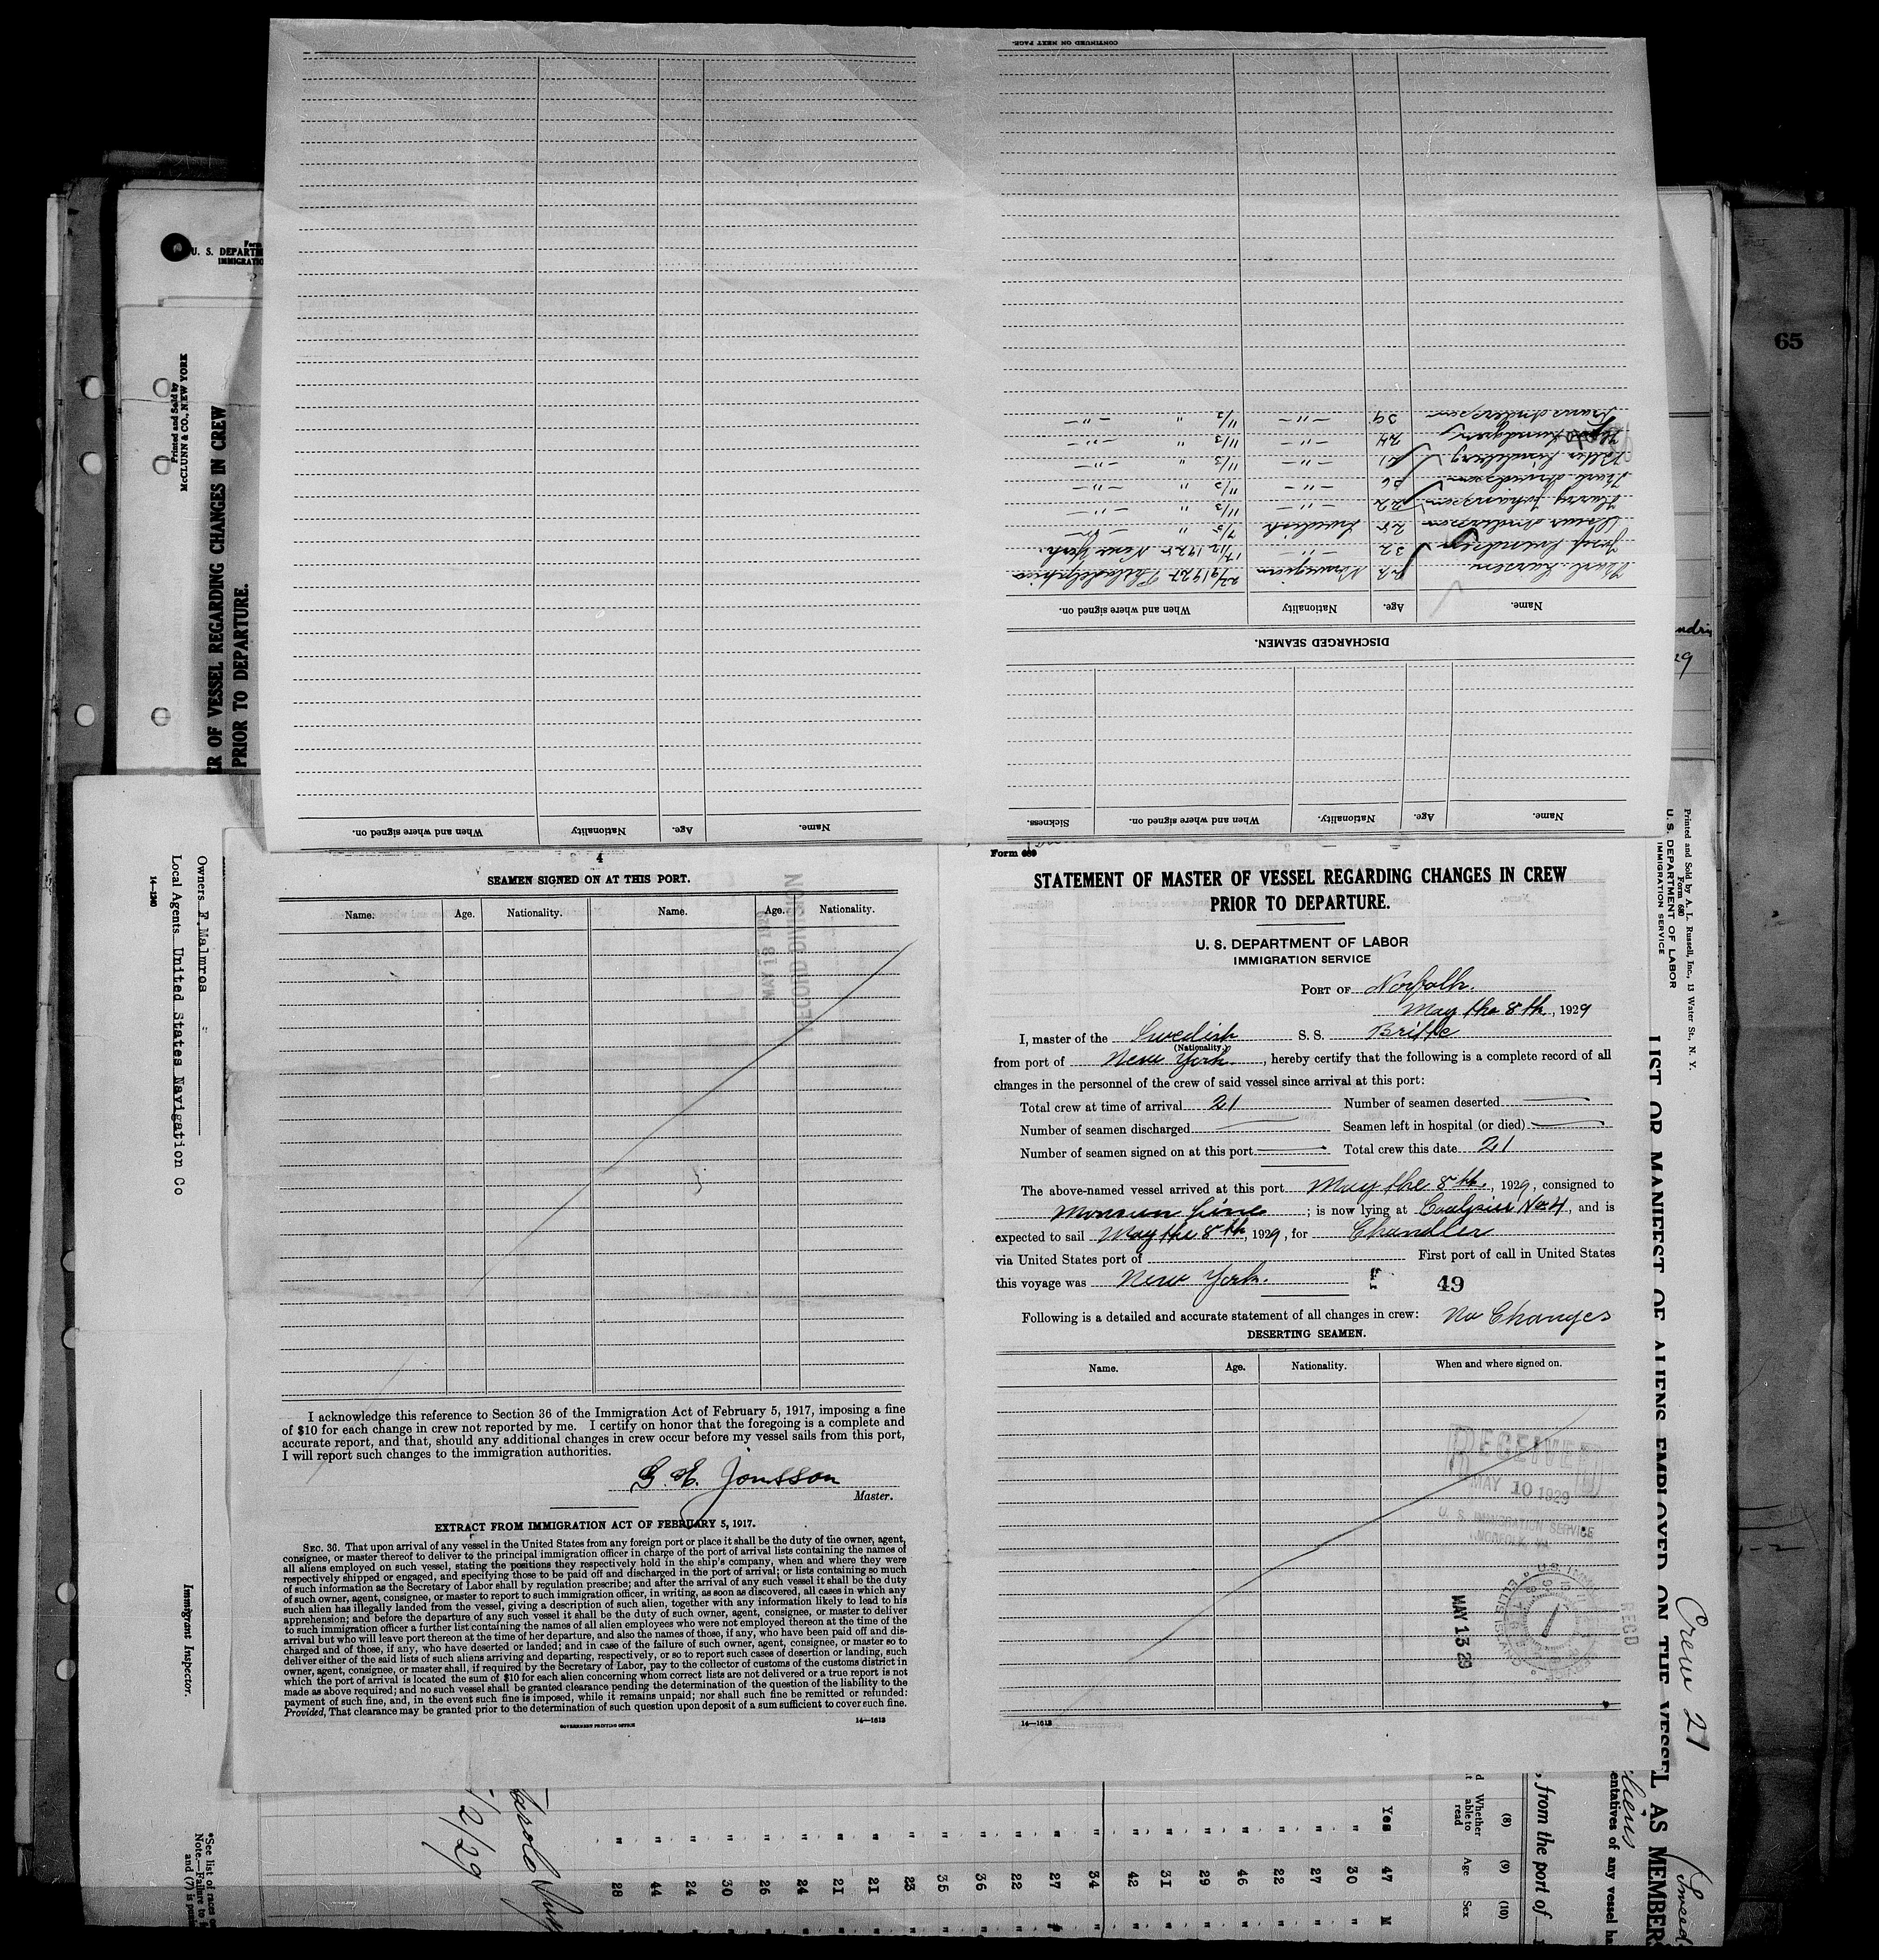 CONTINUED ON NEXT PAGE.
Frans Andersson 39 -"- 11/3 " -"-
Lundgren 24 -"- 11/3 " -"-
Lindberg 21 -"- 11/3 " -"-
26 -"- 11/3 " -"-
Harry Johansson 22 11/3 " -"-
Andersson 25 Swedish 7/5 " -"-
Josef Svendsen 32 -"- 17/12 1928 New York.
Karl Larsen Norwegian 22/9 1927 Philadelphia
Name. Age. Nationality When and where signed on.
DISCHARGED SEAMEN.
Name. Age. Nationality. When and where signed on. Sickness.
Name. Age. Nationality When and where signed on.
65
Form
U. S. DEPARTM
IMMIGRATIO
Printed and Sold by
McCLUNN & CO., NEW YORK
ER OF VESSEL REGARDING CHANGES IN CREW
PRIOR TO DEPARTURE.
andri
29
Owners F. Malmros
Local Agents United States Navigation Co
14—1240
Immigrant Inspector.
4
SEAMEN SIGNED ON AT THIS PORT.
Name. Age. Nationality. Name. Age. Nationality.
MAY 13 1929
RECORD DIVISION
I acknowledge this reference to Section 36 of the Immigration Act of February 5, 1917, imposing a fine
of $10 for each change in crew not reported by me. I certify on honor that the foregoing is a complete and
accurate report, and that, should any additional changes in crew occur before my vessel sails from this port,
I will report such changes to the immigration authorities.
G. E. Jonsson
Master.
EXTRACT FROM IMMIGRATION ACT OF FEBRUARY 5, 1917.
SEC. 36. That upon arrival of any vessel in the United States from any foreign port or place it shall be the duty of the owner, agent,
consignee, or master thereof to deliver to the principal immigration officer in charge of the port of arrival lists containing the names of
all aliens employed on such vessel, stating the positions they respectively hold in the ship's company, when and where they were
respectively shipped or engaged, and specifying those to be paid off and discharged in the port of arrival; or lists containing so much
of such information as the Secretary of Labor shall by regulation prescribe; and after the arrival of any such vessel it shall be the duty
of such owner, agent, consignee, or master to report to such immigration officer, in writing, as soon as discovered, all cases in which any
such alien has illegally landed from the vessel, giving a description of such alien, together with any information likely to lead to his
apprehension; and before the departure of any such vessel it shall be the duty of such owner, agent, consignee, or master to deliver
to such immigration officer a further list containing the names of all alien employees who were not employed thereon at the time of the
arrival but who will leave port thereon at the time of her departure, and also the names of those, if any, who have been paid off and dis-
charged and of those, if any, who have deserted or landed; and in case of the failure of such owner, agent, consignee, or master so to
deliver either of the said lists of such aliens arriving and departing, respectively, or so to report such cases of desertion or landing, such
owner, agent, consignee, or master shall, if required by the Secretary of Labor, pay to the collector of customs of the customs district in
which the port of arrival is located the sum of $10 for each alien concerning whom correct lists are not delivered or a true report is not
made as above required; and no such vessel shall be granted clearance pending the determination of the question of the liability to the
payment of such fine, and, in the event such fine is imposed, while it remains unpaid; nor shall such fine be remitted or refunded:
Provided, That clearance may be granted prior to the determination of such question upon deposit of a sum sufficient to cover such fine.
GOVERNMENT PRINTING OFFICE
14—1613
Form 689
STATEMENT OF MASTER OF VESSEL REGARDING CHANGES IN CREW
PRIOR TO DEPARTURE.
U. S. DEPARTMENT OF LABOR
IMMIGRATION SERVICE
PORT OF Norfolk.
May the 8th, 1929
I, master of the Swedish S. S. Britte
(Nationality.)
from port of New York, hereby certify that the following is a complete record of all
changes in the personnel of the crew of said vessel since arrival at this port:
Total crew at time of arrival 21 Number of seamen deserted
Number of seamen discharged Seamen left in hospital (or died)
Number of seamen signed on at this port Total crew this date 21
The above-named vessel arrived at this port May the 8th, 1929, consigned to
Munson Line; is now lying at Coalpier No 4, and is
expected to sail May the 8th, 1929, for Chandler
via United States port of First port of call in United States
this voyage was New York.
49
Following is a detailed and accurate statement of all changes in crew: No Changes
DESERTING SEAMEN.
Name. Age. Nationality. When and where signed on.
RECEIVED
MAY 10 1929
U. S. IMMIGRATION SERVICE
NORFOLK, VA
MAY 13 29
REC'D
14—1613
Printed and Sold by A. L. Russell, Inc., 13 Water St., N. Y.
Form 680
U. S. DEPARTMENT OF LABOR
IMMIGRATION SERVICE
LIST OR MANIFEST OF ALIENS EMPLOYED ON THE VESSEL AS MEMBERS
Crew 21
Aliens
Swed
entatives of any vessel ha
, from the port of
(8) (9) (10)
Whether able to read Age Sex
Yes 47 M
" 30 "
" 27 "
" 22 "
" 46 "
" 29 "
" 31 "
" 42 "
" 34 "
" 27 "
" 22 "
" 36 "
" 35 "
" 23 "
" 21 "
" 21 "
" 24 "
" 26 "
" 30 "
" 24 "
" 44 "
" 28 "
/2/29
*See list of races
Note.—Failure to
and (7) is